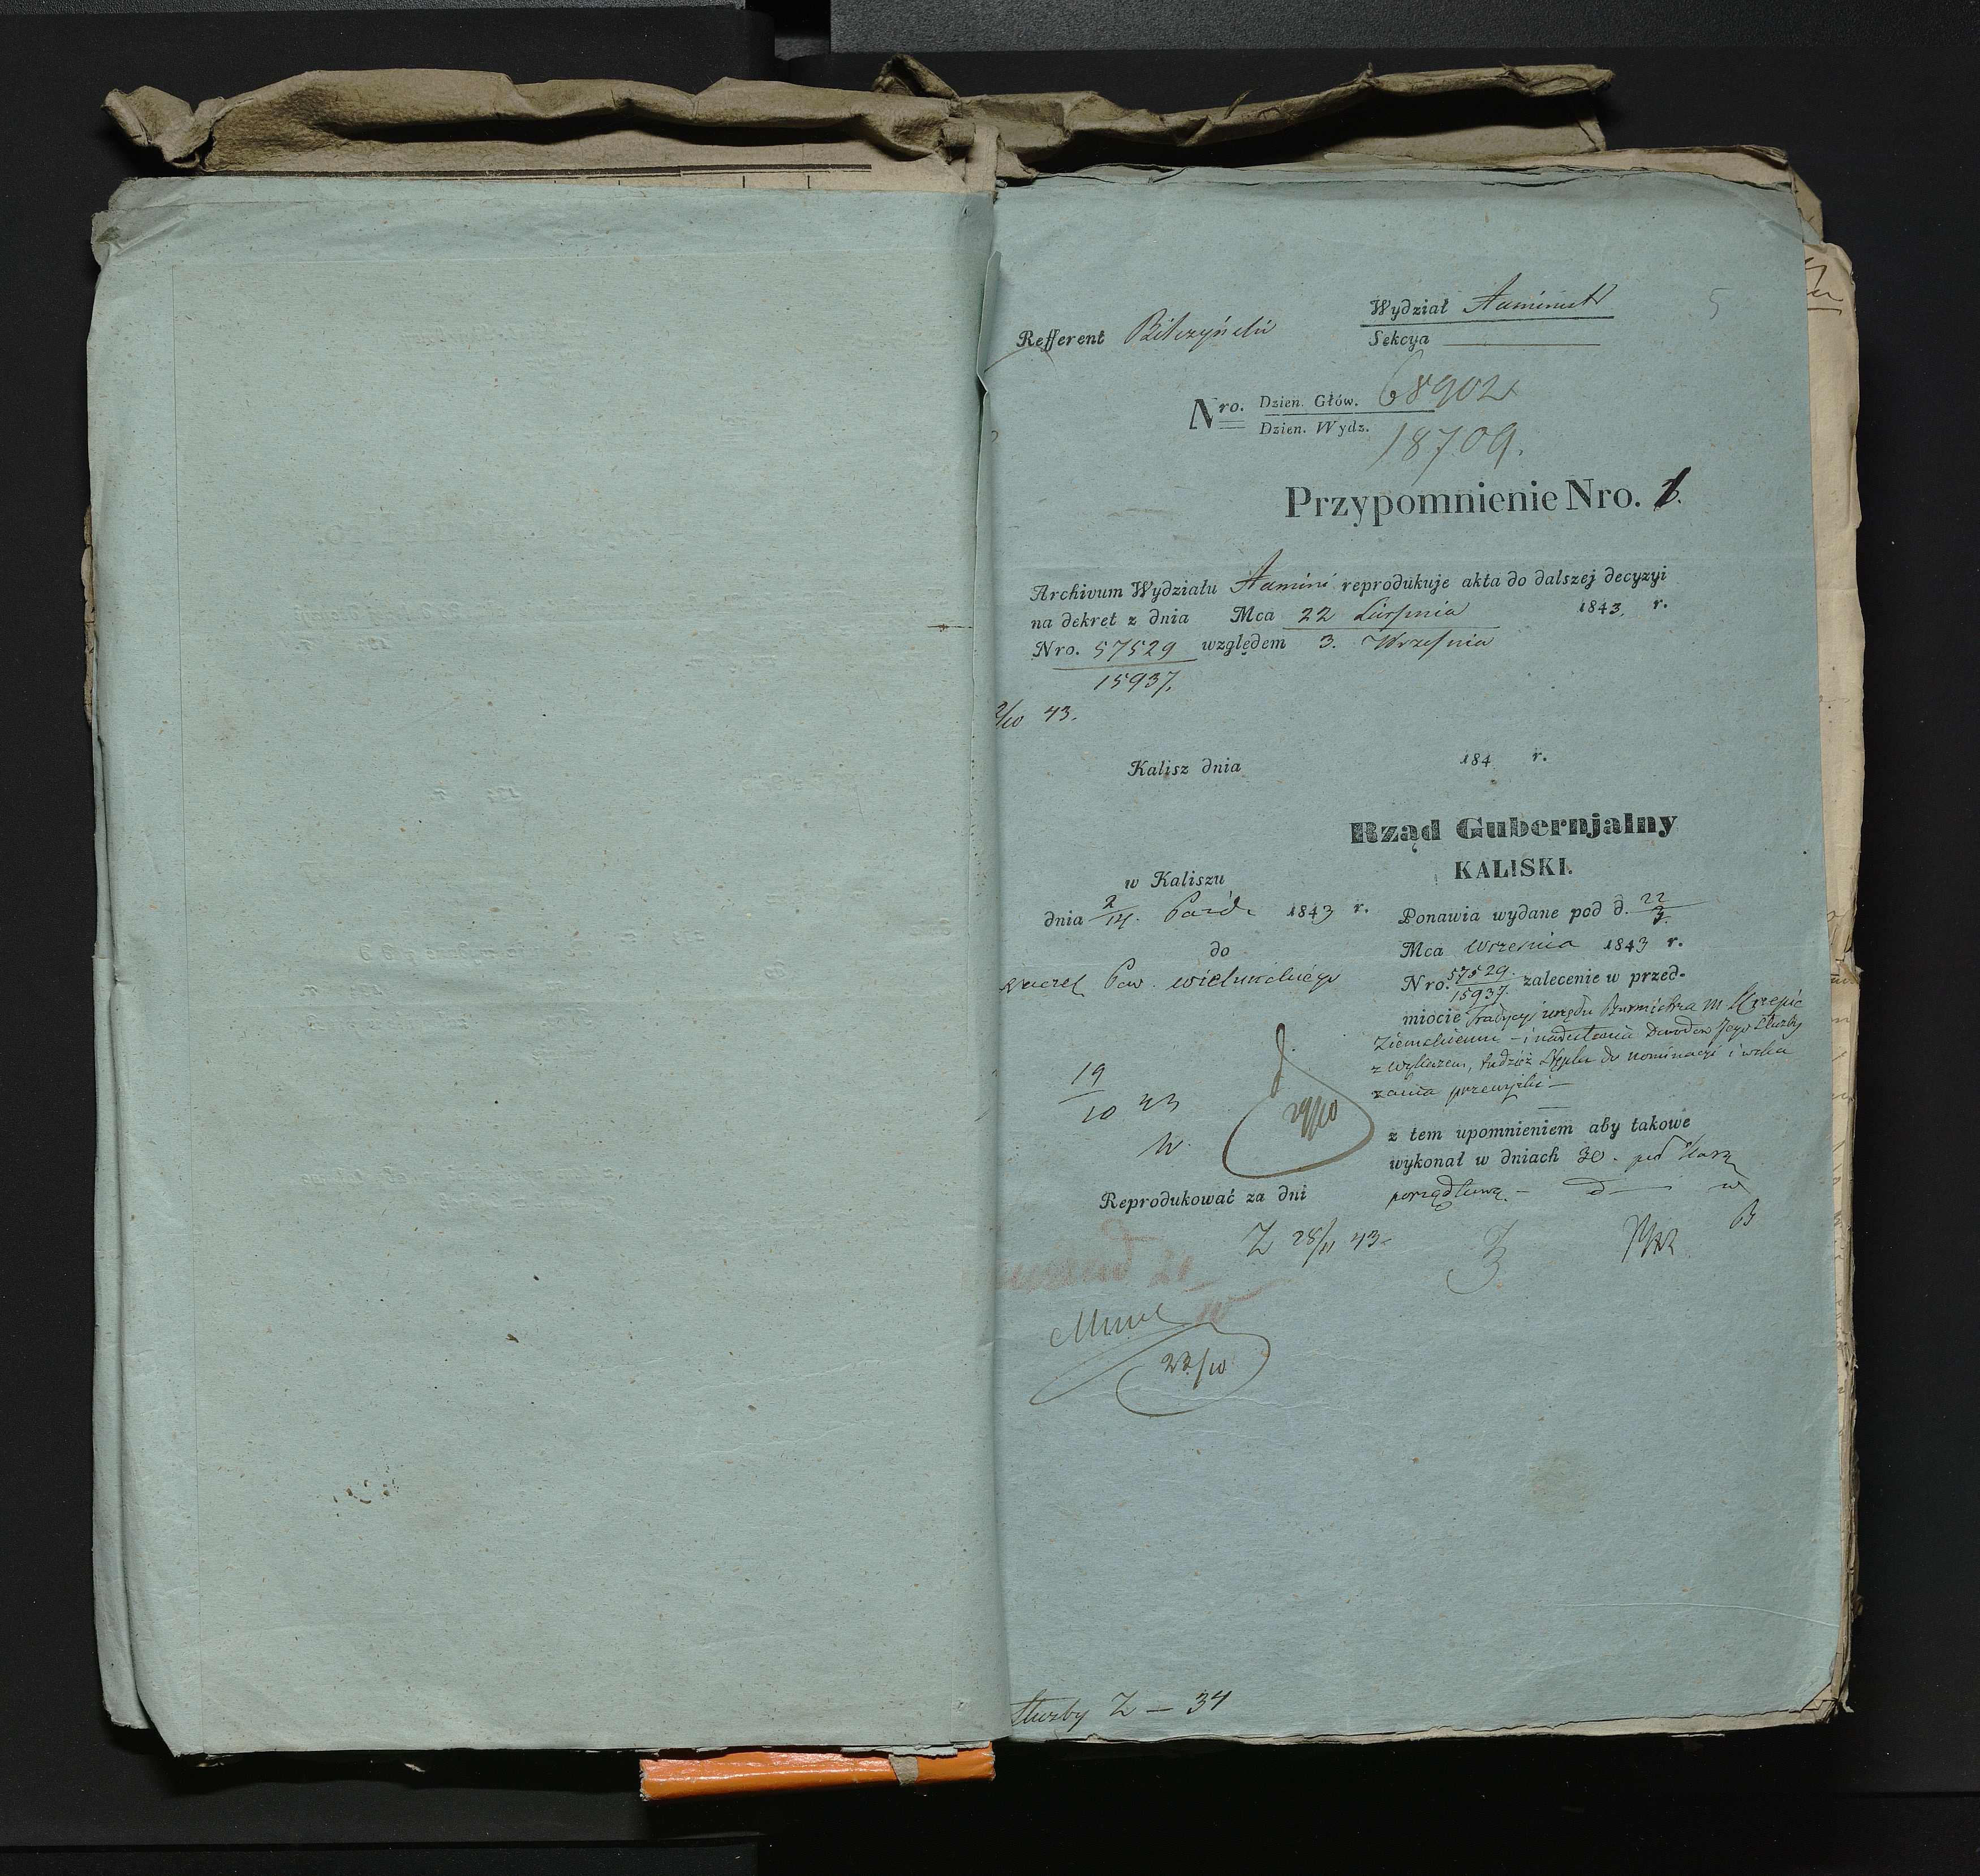 5
Wydział Administ
Refferent Bilczyński
Sekcya
Nro. Dzien. Głów. 68902
Dzien. Wydz. 18709.
Przypomnienie Nro. 1.
Archivum Wydziału Admini reprodukuje akta do dalszej decyzyi
na dekret z dnia Mca 22 Sierpnia 1843. r.
Nro. 57529 względem 3. Września
15937.
2/10 43.
Kalisz dnia 184 r.
Rząd Gubernjalny
KALISKI.
w Kaliszu
dnia 2/14. Paźd. 1843 r.
do
Naczel Pow. wieluńskiego
Ponawia wydane pod d. 22/3.
Mca Września 1843 r.
Nro. 57529./15937. zalecenie w przed-
miocie tradycyi urzędu Burmistrza M Krzepic
Ziemskiemu - i nadesłania Dowodów Jego Służby
z wykazem, tudzież Stępla do nominacyi i wska
zania przewyżki -
z tem upomnieniem aby takowe
wykonał w dniach 30. pod karą
porządkową -
19/10 43
29/10
Reprodukować za dni
Z 28/11 43
23/10
Służby Z - 34